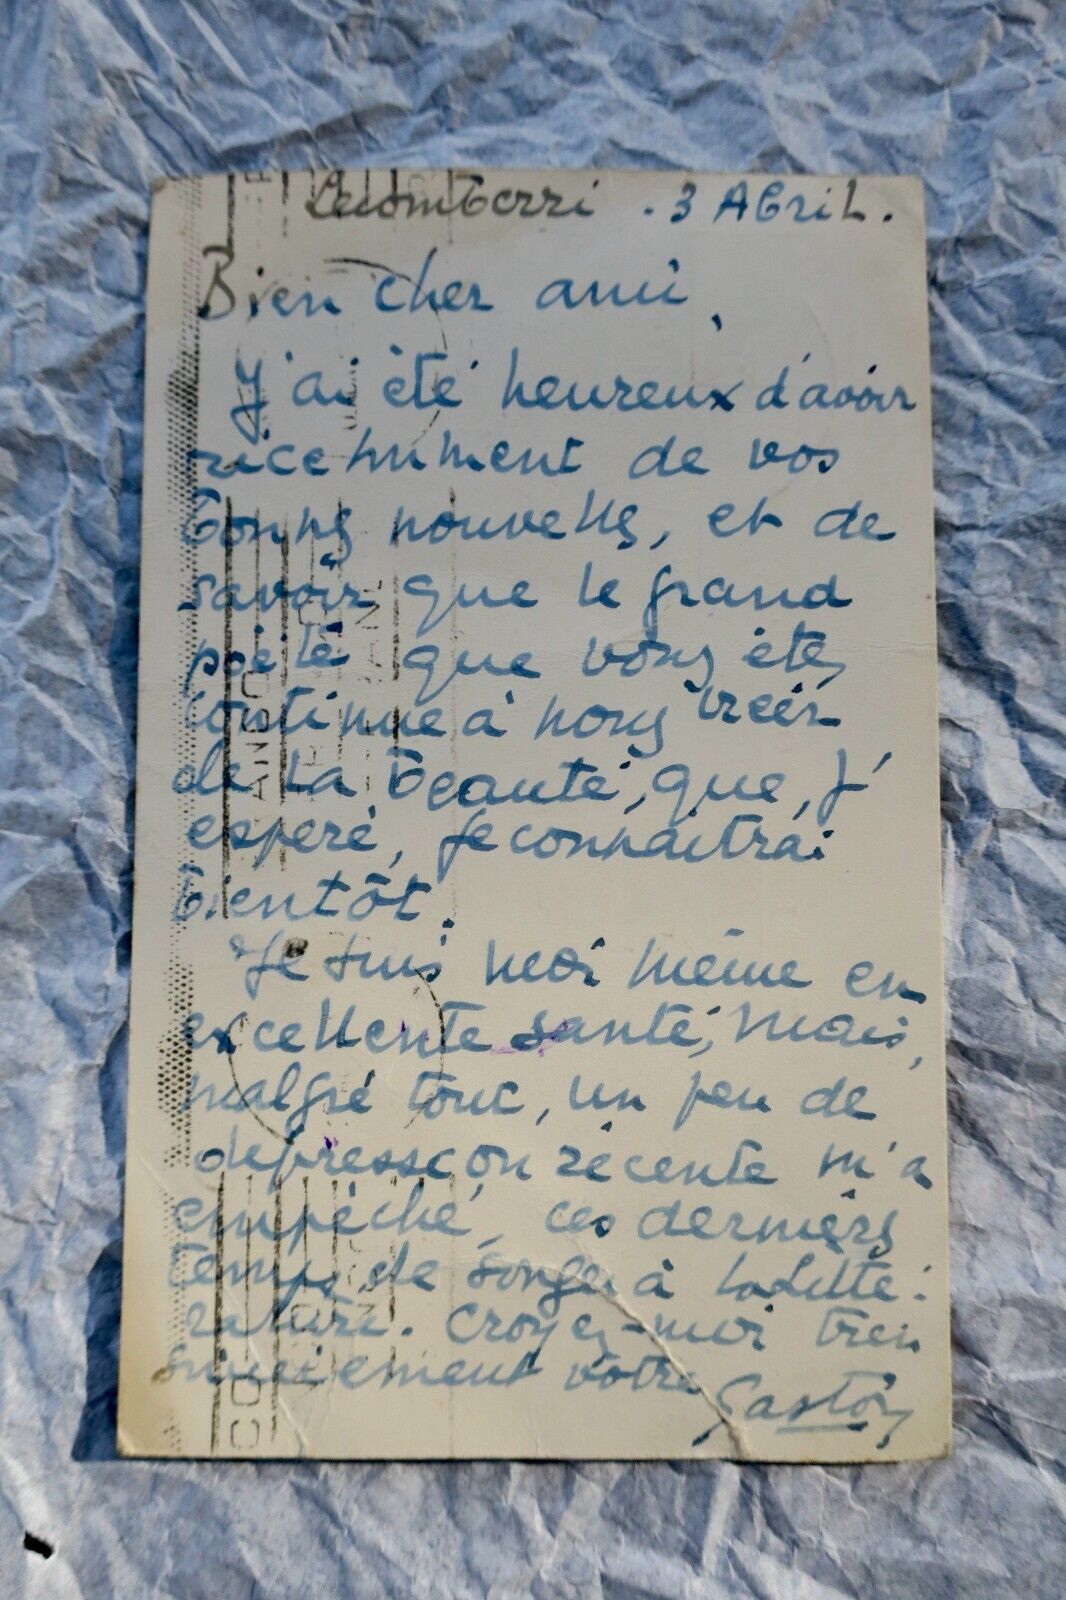 Lecomberri . 3 Abril.
Bien cher ami,
J'ai été heureux d'avoir
récemment de vos
bonnes nouvelles, et de
savoir que le grand
poète que vous êtes
continue à nous créer
de la beauté, que, j'
espère, je connaîtrai
bientôt.
Je suis moi même en
excellente santé, mais,
malgré tout, un peu de
depression récente m'a
empêché, ces derniers
temps, de songer à la Litté-
rature. Croyez-moi bien
sincèrement votre
Gaston